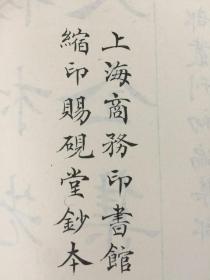 上海商務印書館
縮印賜硯堂鈔本